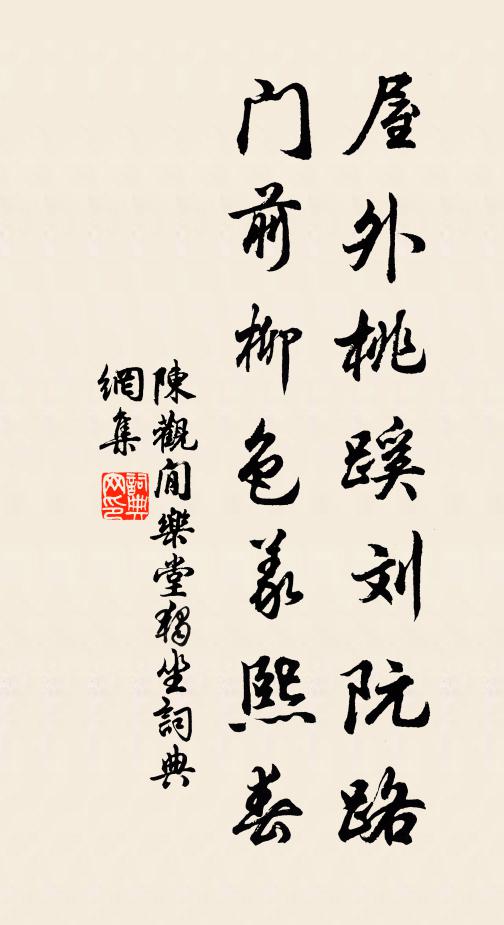 屋外桃蹊刘阮路
门前柳色羲熙春
陳觀閒樂堂獨坐詞典
網集
詞典
网印